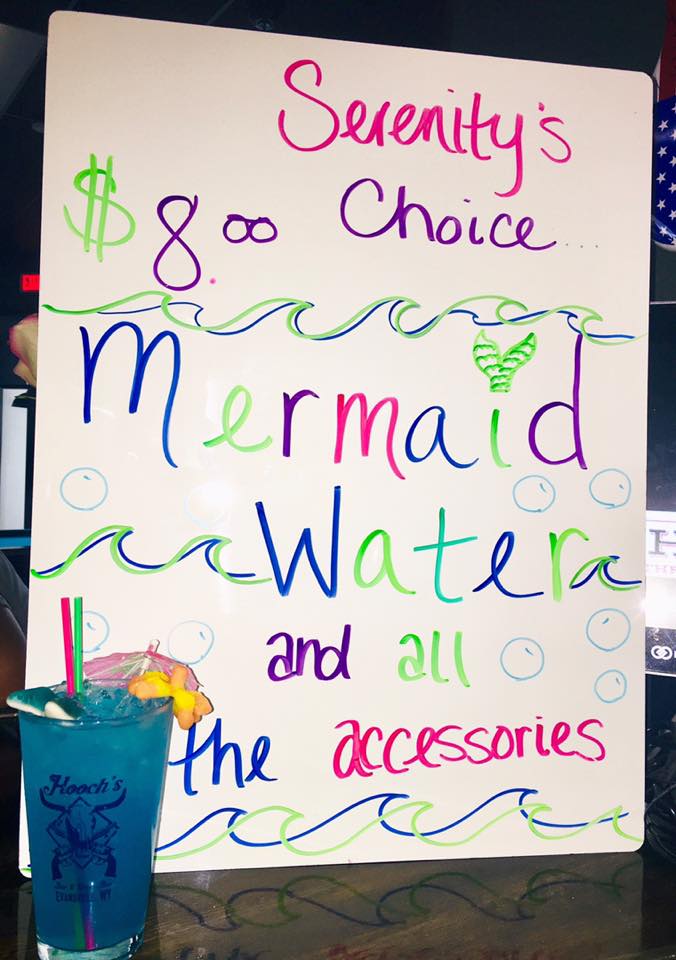 Serenity's
$8.00 Choice...
Mermaid
Water
and all
the accessories
Hooch's